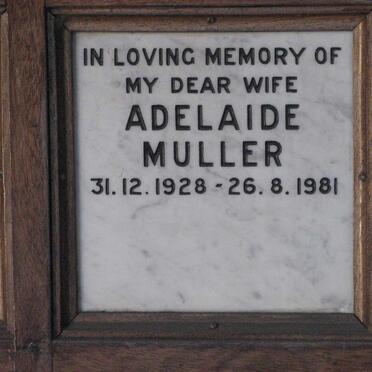 IN LOVING MEMORY OF
MY DEAR WIFE
ADELAIDE
MULLER
31.12.1928 - 26.8.1981